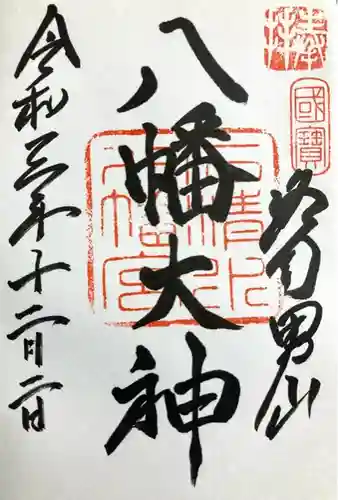 奉拝
國寶
洛南男山
八幡大神
石清水八幡宮
令和三年十二月二日